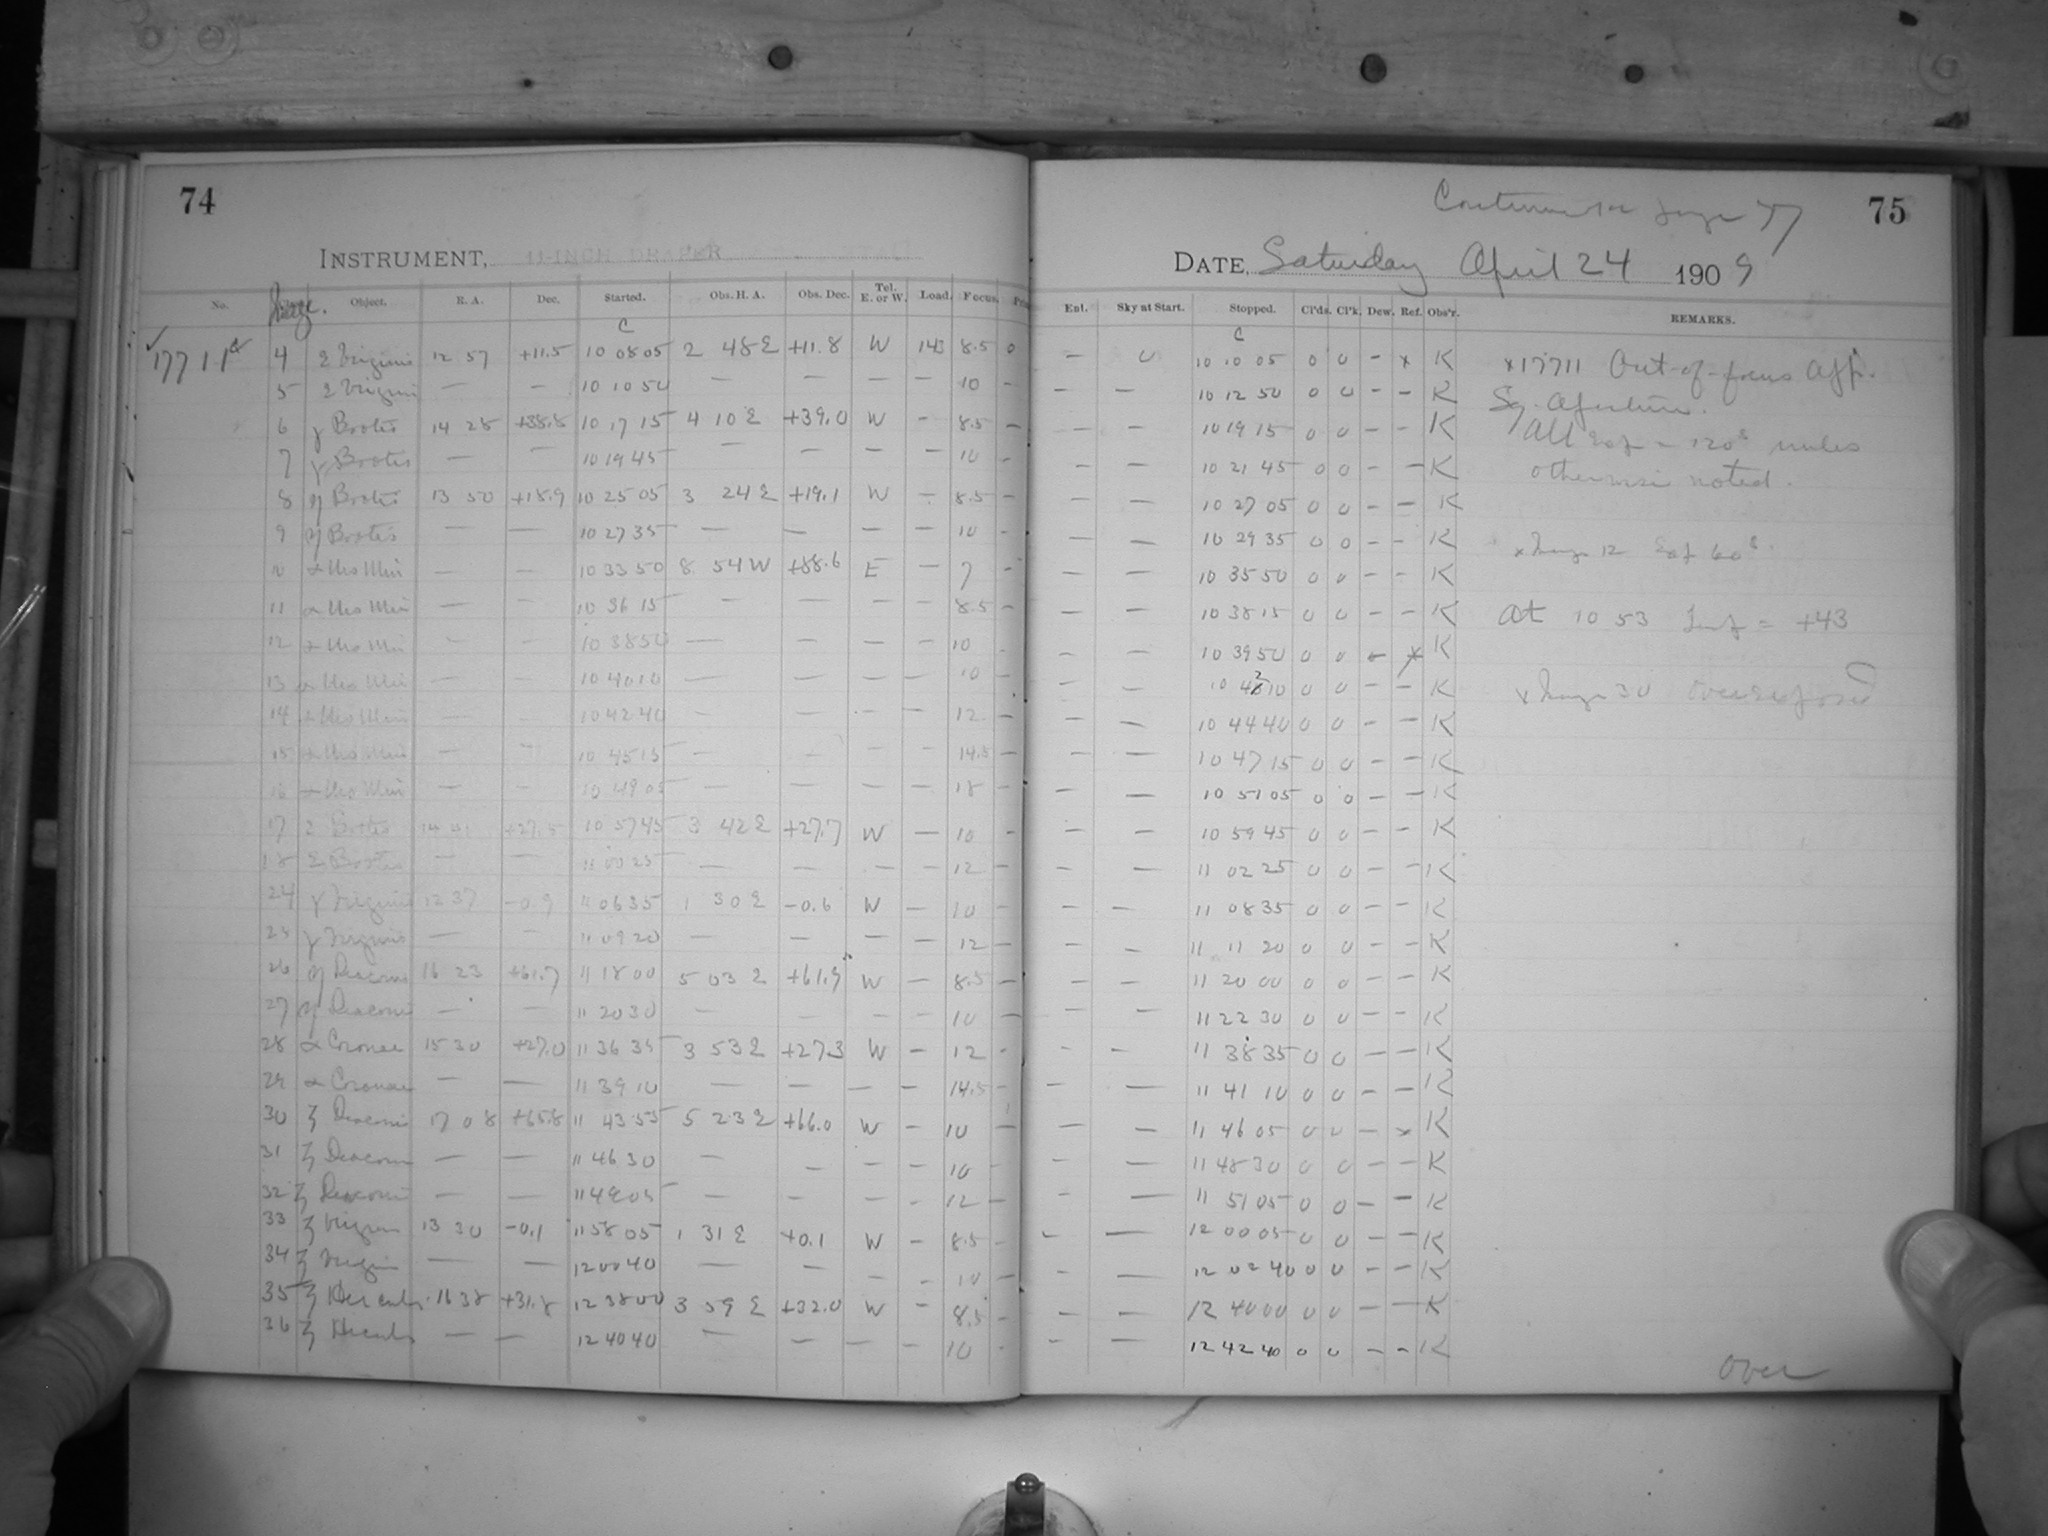 74
INSTRUMENT, 11-INCH DRAPER
No. Image. Object. R. A. Dec. Started. Obs. H. A. Obs. Dec. Tel. E. or W. Load. Focus.
C
17711 4 ε Virginis 12 57 +11.5 10 08 05 2 48 E +11.8 W 143 8.5 0
5 ε Virginis — — 10 10 50 — — — — 10 -
6 γ Bootis 14 28 +38.8 10 17 15 4 10 E +39.0 W - 8.5 -
7 γ Bootis — — 10 19 45 — — — — 10 -
8 η Bootis 13 50 +18.9 10 25 05 3 24 E +19.1 W - 8.5 -
9 η Bootis — — 10 27 35 — — — — 10 -
10 α Urs Min — — 10 33 50 8 54 W +88.6 E — 7 -
11 α Urs Min — — 10 36 15 — — — — 8.5 -
12 α Urs Min - — 10 38 50 — — — — 10 -
13 α Urs Min — — 10 40 10 — — — — 10 -
14 α Urs Min — — 10 42 40 — — — — 12 -
15 α Urs Min — — 10 45 15 — — — — 14.5 -
16 α Urs Min — — 10 49 05 — — — — 18 -
17 ε Bootis 14 41 +27.5 10 57 45 3 42 E +27.7 W — 10 -
18 ε Bootis — — 11 00 25 — — — — 12 -
24 γ Virginis 12 37 -0.9 11 06 35 1 30 E -0.6 W — 10 -
25 γ Virginis — — 11 09 20 — — — — 12 -
26 η Draconis 16 23 +61.7 11 18 00 5 03 E +61.9 W — 8.5 -
27 η Draconis — — 11 20 30 — — — — 10 -
28 α Coronae 15 30 +27.0 11 36 35 3 53 E +27.3 W - 12 -
29 α Coronae — — 11 39 10 — — — — 14.5 -
30 ζ Draconis 17 08 +65.8 11 43 55 5 23 E +66.0 W - 10 -
31 ζ Draconis — — 11 46 30 — — — — 10 -
32 ζ Draconis — — 11 49 05 — — — — 12 -
33 ζ Virginis 13 30 -0.1 11 58 05 1 31 E +0.1 W - 8.5 -
34 ζ Virginis — — 12 00 40 — — — - 10 -
35 ζ Herculis 16 38 +31.8 12 38 00 3 59 E +32.0 W - 8.5 -
36 ζ Herculis — — 12 40 40 — — — — 10 -
Continued on page 77
75
DATE, Saturday April 24 1909
Ent. Sky at Start. Stopped. Cl'ds. Cl'k. Dew. Ref. Obs'r. REMARKS.
C
— 0 10 10 05 0 0 - x K
— — 10 12 50 0 0 - - K
- — 10 19 15 0 0 - - K
— — 10 21 45 0 0 - - K
— — 10 27 05 0 0 - - K
— — 10 29 35 0 0 - - K
— — 10 35 50 0 0 - - K
— — 10 38 15 0 0 - - K
— — 10 39 50 0 0 - x K
— — 10 42 10 0 0 - - K
— — 10 44 40 0 0 - - K
— — 10 47 15 0 0 - - K
— — 10 51 05 0 0 - - K
- — 10 59 45 0 0 - - K
- — 11 02 25 0 0 - - K
- — 11 08 35 0 0 - - K
- - 11 11 20 0 0 - - K
- - 11 20 00 0 0 - - K
— — 11 22 30 0 0 - - K
— - 11 38 35 0 0 - - K
— — 11 41 10 0 0 - - K
— — 11 46 05 0 0 - x K
— — 11 48 30 0 0 - - K
- — 11 51 05 0 0 - - K
- — 12 00 05 0 0 - - K
- — 12 02 40 0 0 - - K
- — 12 40 00 0 0 - - K
- — 12 42 40 0 0 - - K
x17711 Out-of-focus App.
Sq. Aperture.
All Exp = 120s unless
otherwise noted.
x Image 12 Exp 60s.
At 10 53 Temp = +43
x Image 30 Overexposed
Over